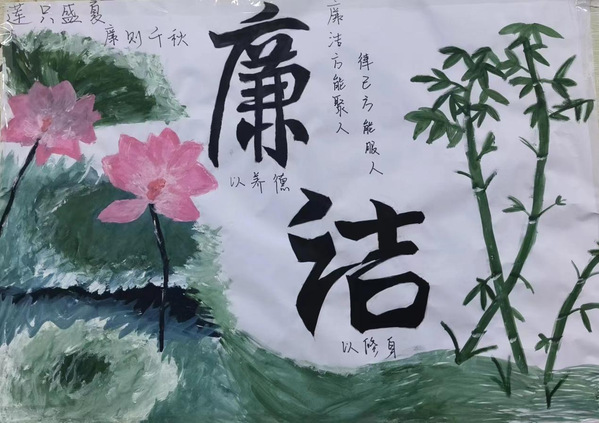 莲只盛夏
廉则千秋
廉
以养德
洁
以修身
廉洁方能聚人
律己方能服人